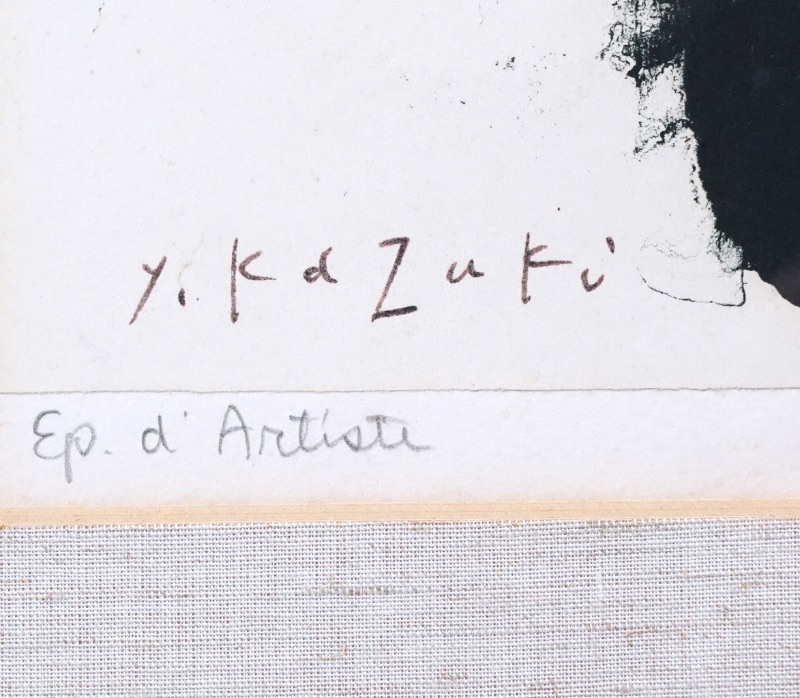 y. KaZuKi
Ep. d'Artiste